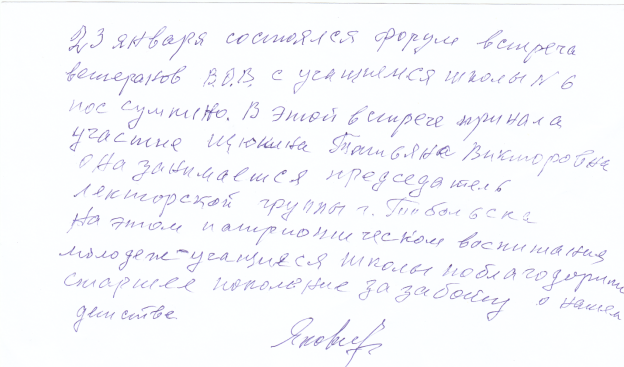 23 января состоялся форум встреча
ветеранов В.О.В. с учащимися школы № 6
пос сумкино. В этой встрече принала
участие Щукина Татьяна Викторовна
она занимается председатель
лекторской группы г. Тобольска
На этом патриотическом воспитания
молодеж-учащиеся школы поблагодарили
старшее поколение за заботу о нашем
детстве.